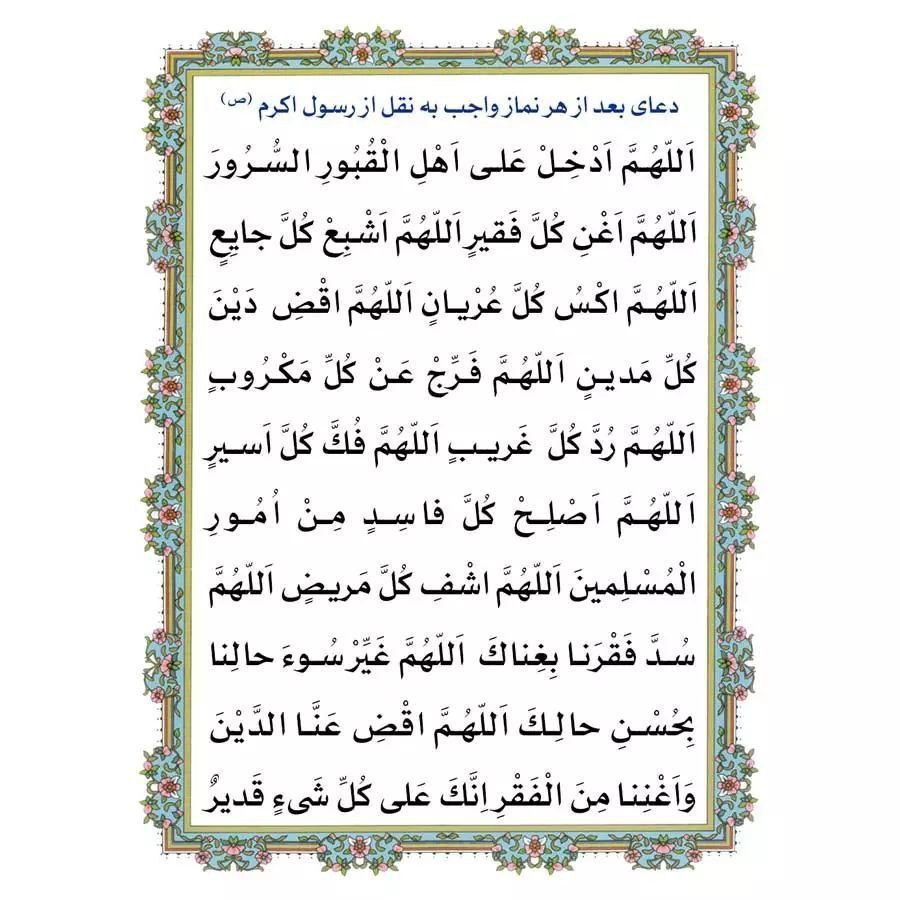 دعای بعد از هر نماز واجب به نقل از رسول اکرم (ص)
اَللّهُمَّ اَدْخِلْ عَلی اَهْلِ الْقُبُورِ السُّرُورَ
اَللّهُمَّ اَغْنِ کُلَّ فَقیرٍ اَللّهُمَّ اَشْبِعْ کُلَّ جایِعٍ
اَللّهُمَّ اکْسُ کُلَّ عُرْیانٍ اَللّهُمَّ اقْضِ دَیْنَ
کُلِّ مَدینٍ اَللّهُمَّ فَرِّجْ عَنْ کُلِّ مَکْرُوبٍ
اَللّهُمَّ رُدَّ کُلَّ غَریبٍ اَللّهُمَّ فُکَّ کُلَّ اَسیرٍ
اَللّهُمَّ اَصْلِحْ کُلَّ فاسِدٍ مِنْ اُمُورِ
الْمُسْلِمینَ اَللّهُمَّ اشْفِ کُلَّ مَریضٍ اَللّهُمَّ
سُدَّ فَقْرَنا بِغِناکَ اَللّهُمَّ غَیِّرْ سُوءَ حالِنا
بِحُسْنِ حالِکَ اَللّهُمَّ اقْضِ عَنَّا الدَّیْنَ
وَاَغْنِنا مِنَ الْفَقْرِ اِنَّکَ عَلی کُلِّ شَیءٍ قَدیرٌ